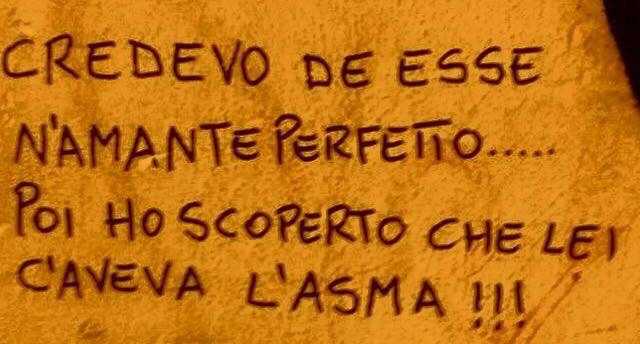 CREDEVO DE ESSE
N'AMANTE PERFETTO.....
POI HO SCOPERTO CHE LEI
C'AVEVA L'ASMA !!!